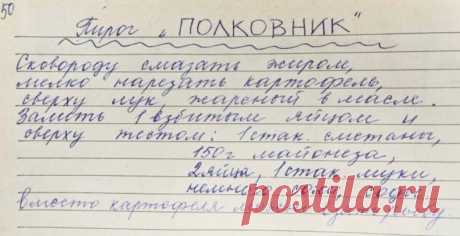 50
Пирог „ПОЛКОВНИК"
Сковороду смазать жиром,
мелко нарезать картофель,
сверху лук, жареный в масле.
Залить 1 взбитым яйцом и
сверху тестом: 1 стак. сметаны,
150г майонеза,
2 яйца, 1 стак муки,
немного
вместо картофеля
postila.ru